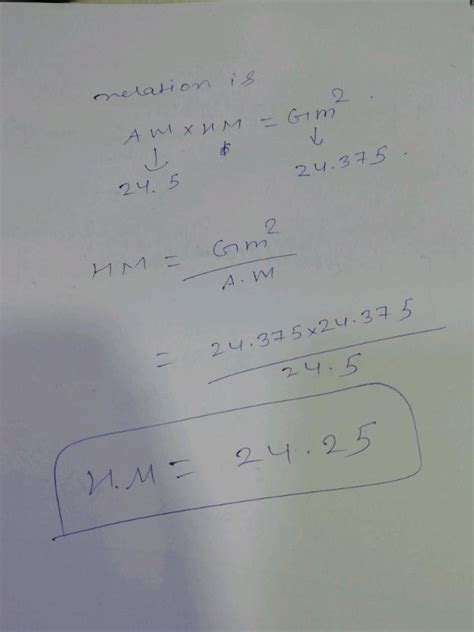 relation is
AM x HM = Gm².
↓ ↓
24.5 24.375.
HM = Gm²
A.M
= 24.375x24.375
24.5
H.M = 24.25